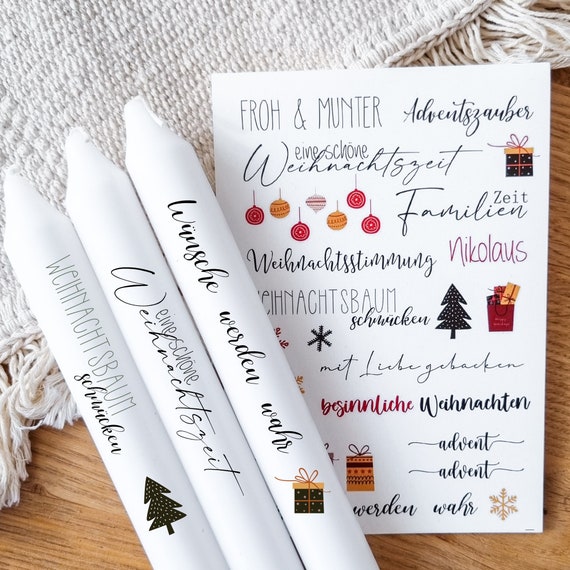 WEIHNACHTSBAUM
schmücken
eine schöne
Weihnachtszeit
Wünsche werden wahr
FROH & MUNTER
Adventszauber
eine schöne
Weihnachtszeit
Zeit
Familien
Weihnachtsstimmung
Nikolaus
EIHNACHTSBAUM
schmücken
mit Liebe gebacken
besinnliche Weihnachten
advent
advent
werden wahr